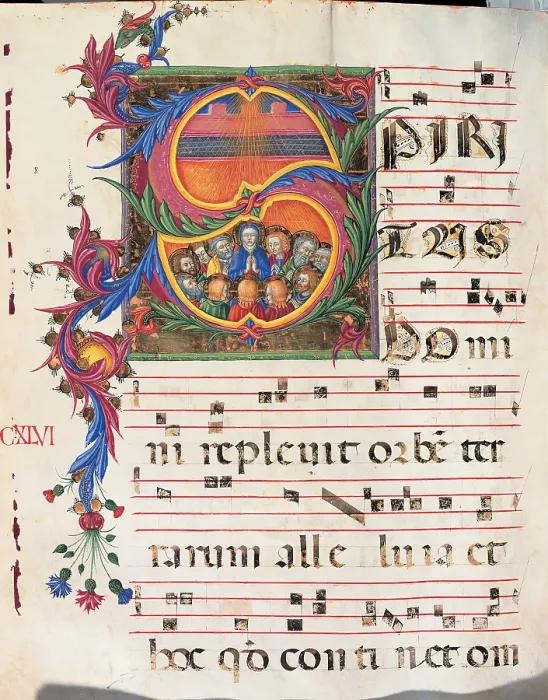 SPIRI
TUS
Domi
CXLVI
ni replevit orbē ter
rarum alle lu ia et
hoc qđ con ti net om